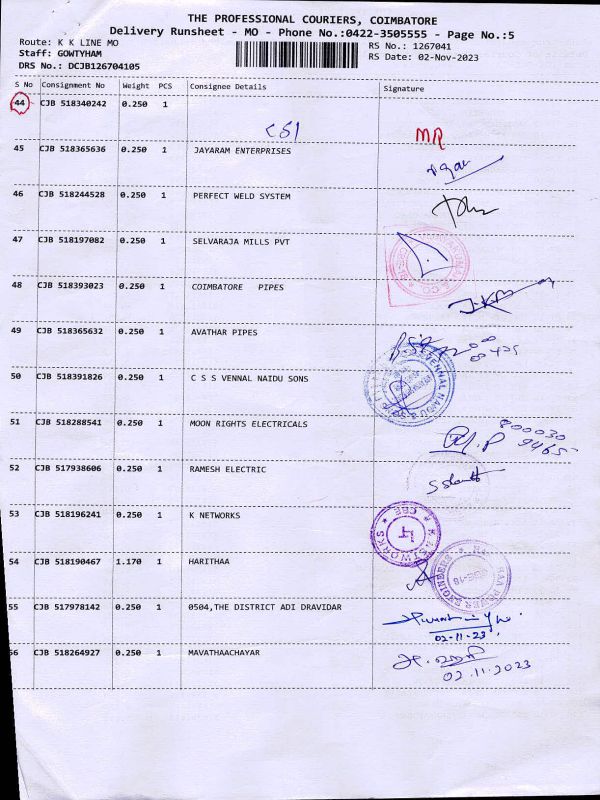 THE PROFESSIONAL COURIERS, COIMBATORE
Delivery Runsheet - MO - Phone No.:0422-3505555 - Page No.:5
Route: K K LINE MO
RS No.: 1267041
Staff: GOWTYHAM
RS Date: 02-Nov-2023
DRS No.: DCJB126704105
S No Consignment No Weight PCS Consignee Details Signature
44 CJB 518340242 0.250 1
CSI MR
45 CJB 518365636 0.250 1 JAYARAM ENTERPRISES
46 CJB 518244528 0.250 1 PERFECT WELD SYSTEM
47 CJB 518197082 0.250 1 SELVARAJA MILLS PVT
48 CJB 518393023 0.250 1 COIMBATORE PIPES
49 CJB 518365632 0.250 1 AVATHAR PIPES
50 CJB 518391826 0.250 1 C S S VENNAL NAIDU SONS
51 CJB 518288541 0.250 1 MOON RIGHTS ELECTRICALS
52 CJB 517938606 0.250 1 RAMESH ELECTRIC
53 CJB 518196241 0.250 1 K NETWORKS
K NETWORKS * CBE *
54 CJB 518190467 1.170 1 HARITHAA
55 CJB 517978142 0.250 1 0504,THE DISTRICT ADI DRAVIDAR
02-11-23
56 CJB 518264927 0.250 1 MAVATHAACHAYAR
02.11.2023